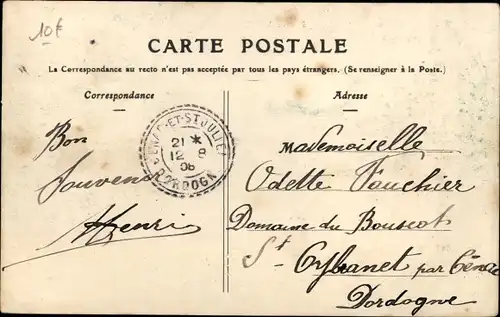 10€
CARTE POSTALE
La Correspondance au recto n'est pas acceptée par tous les pays étrangers. (Se renseigner à la Poste.)
Correspondance
Adresse
ET-ST JULIEN
21 *
12 8
06
DORDOGNE
Bon
Souvenir
Henri
Mademoiselle
Odette Fauchier
Domaine du Bouscot
St Cybranet par Cénac
Dordogne